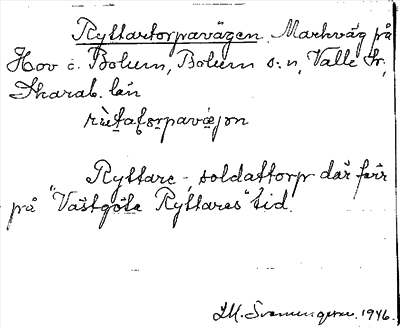 Ryttartorpavägen. Markväg på
Hov i Bolum, Bolum s:n, Valle hr,
Skarab. län
Ryttare-, soldattorp där förr
på "Västgöta Ryttares" tid.
1946.